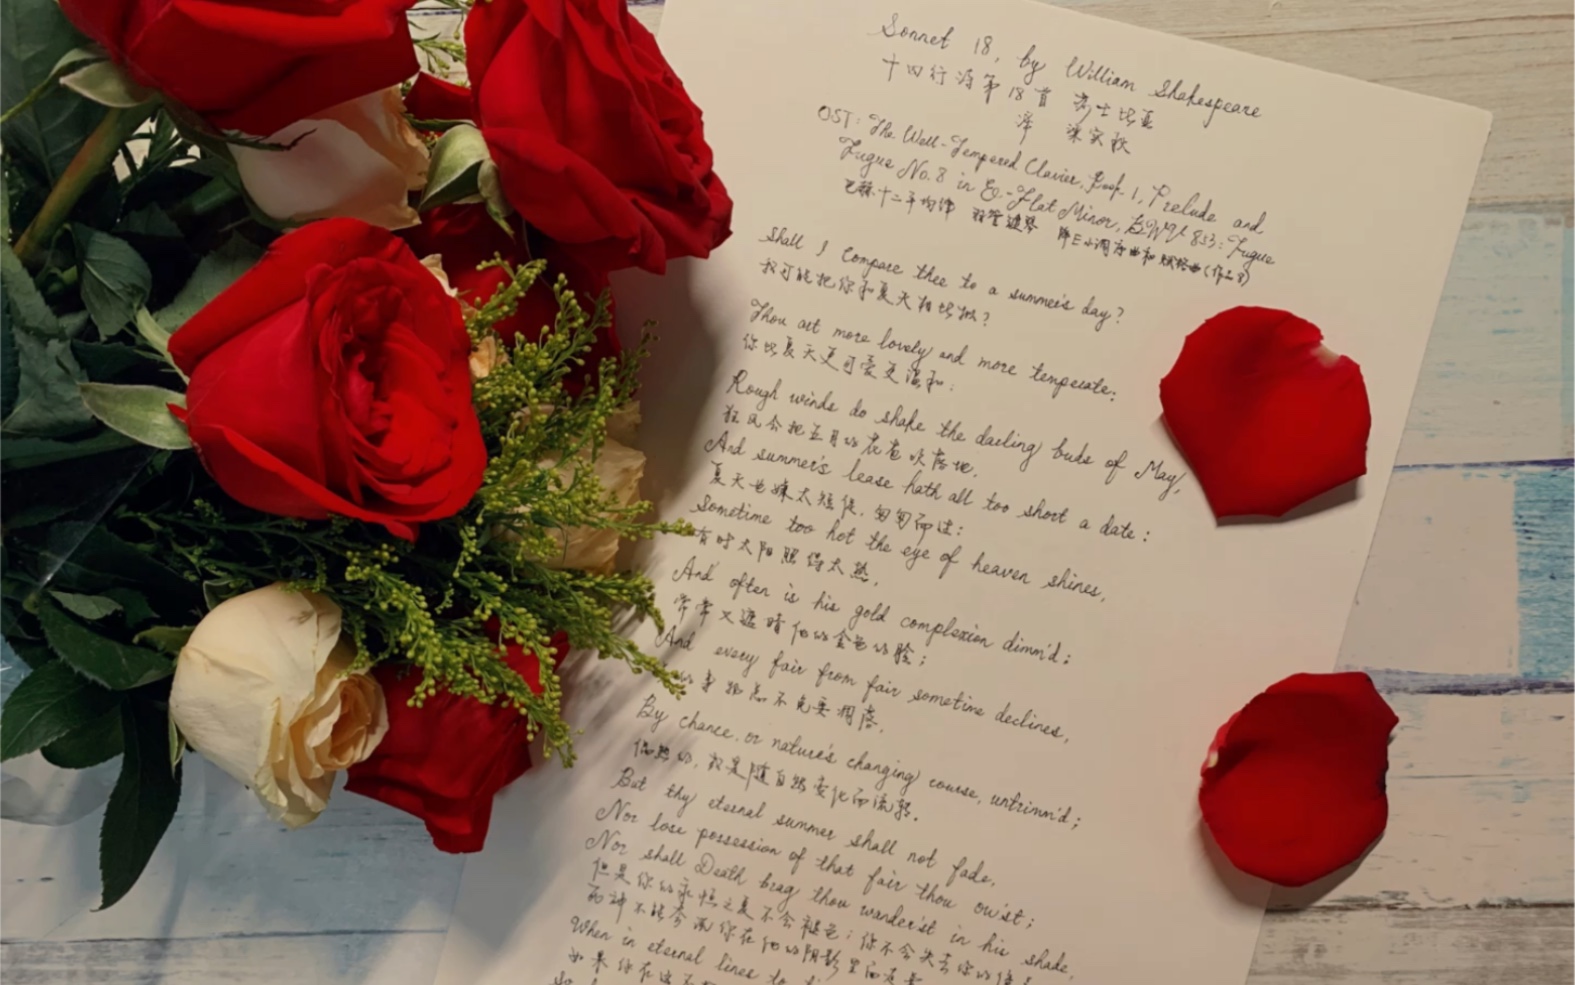 Sonnet 18, by William Shakespeare
十四行诗第18首 莎士比亚
译 梁实秋
OST: The Well-Tempered Clavier, Book 1, Prelude and
Fugue No.8 in E-Flat Minor, BWV 853: Fugue
巴赫十二平均律 羽管键琴 降E小调序曲和赋格曲(作品8)
Shall I compare thee to a summer's day?
我可能把你和夏天相比拟?
Thou art more lovely and more temperate:
你比夏天更可爱更温和:
Rough winds do shake the darling buds of May,
狂风会把五月的花苞吹落地,
And summer's lease hath all too short a date:
夏天也嫌太短促,匆匆而过:
Sometime too hot the eye of heaven shines,
有时太阳照得太热,
And often is his gold complexion dimm'd;
常常又遮暗他的金色的脸;
And every fair from fair sometime declines,
不免要凋落,
By chance, or nature's changing course, untrimm'd;
偶然的,或是随自然变化而流转。
But thy eternal summer shall not fade,
Nor lose possession of that fair thou ow'st;
Nor shall Death brag thou wander'st in his shade,
但是你的永恒之夏不会褪色;你不会失去你的
死神不能夸说你在他的阴影里面走着
When in eternal lines to
如果你在这不
So